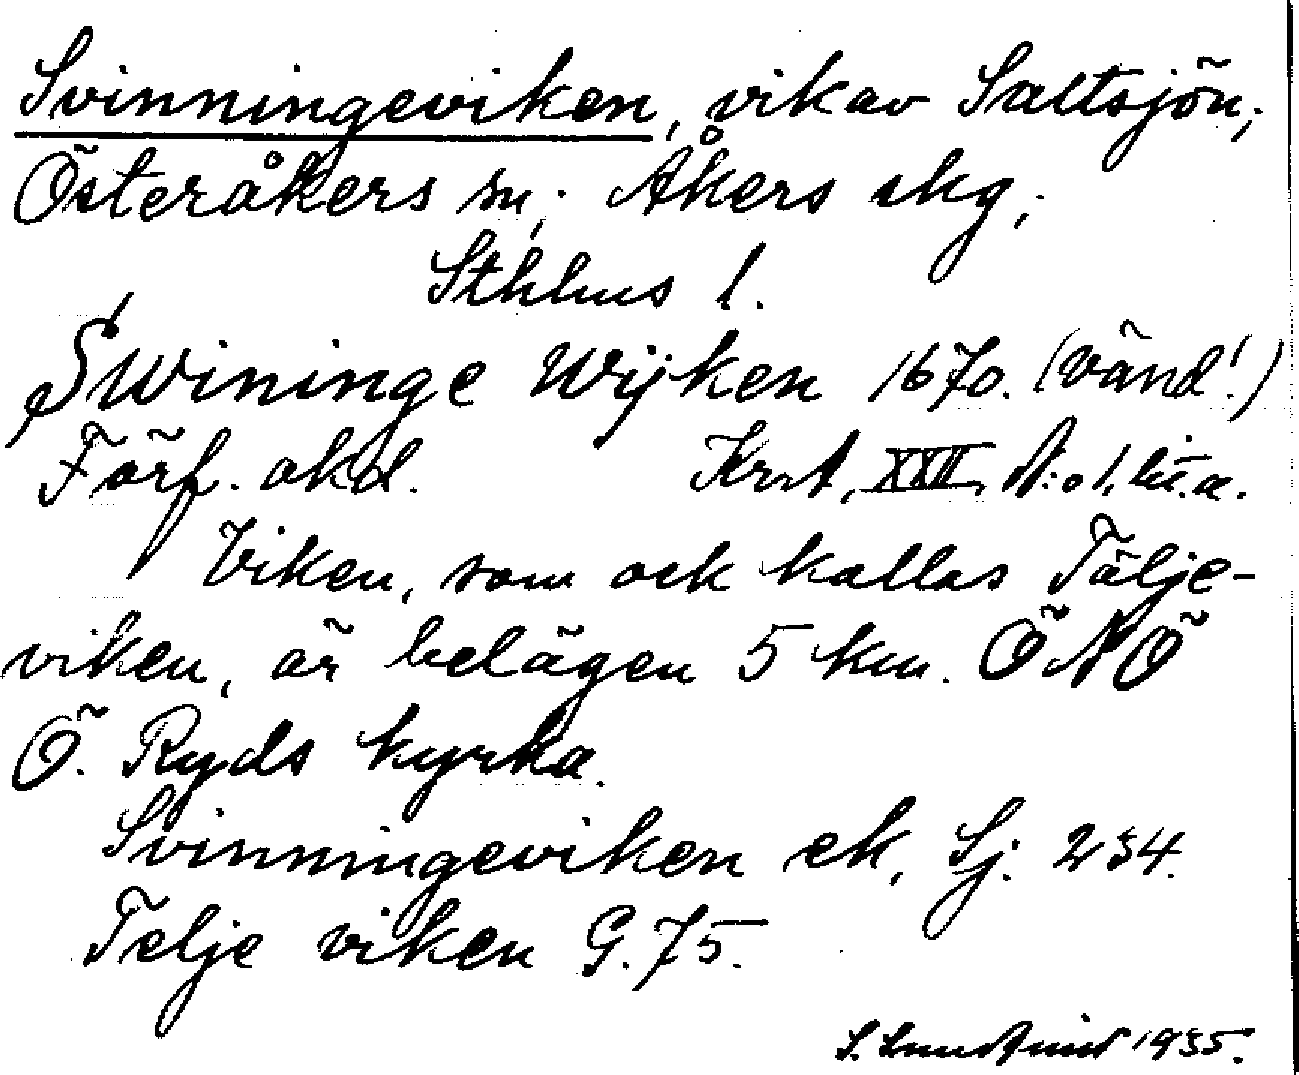 Svinningeviken, vik av Saltsjön,
Österåkers sn, Åkers skg,
Sthlms l.
Swininge Wijken 1670. (vänd!)
Förf. okd. Krt, XXII, A:o 1, lit. a.
Viken, som ock kallas Tälje-
viken, är belägen 5 km. ÖNÖ
Ö. Ryds kyrka.
Svinningeviken ek, Sj. 234.
Telje viken G. 75.
S. 1935.